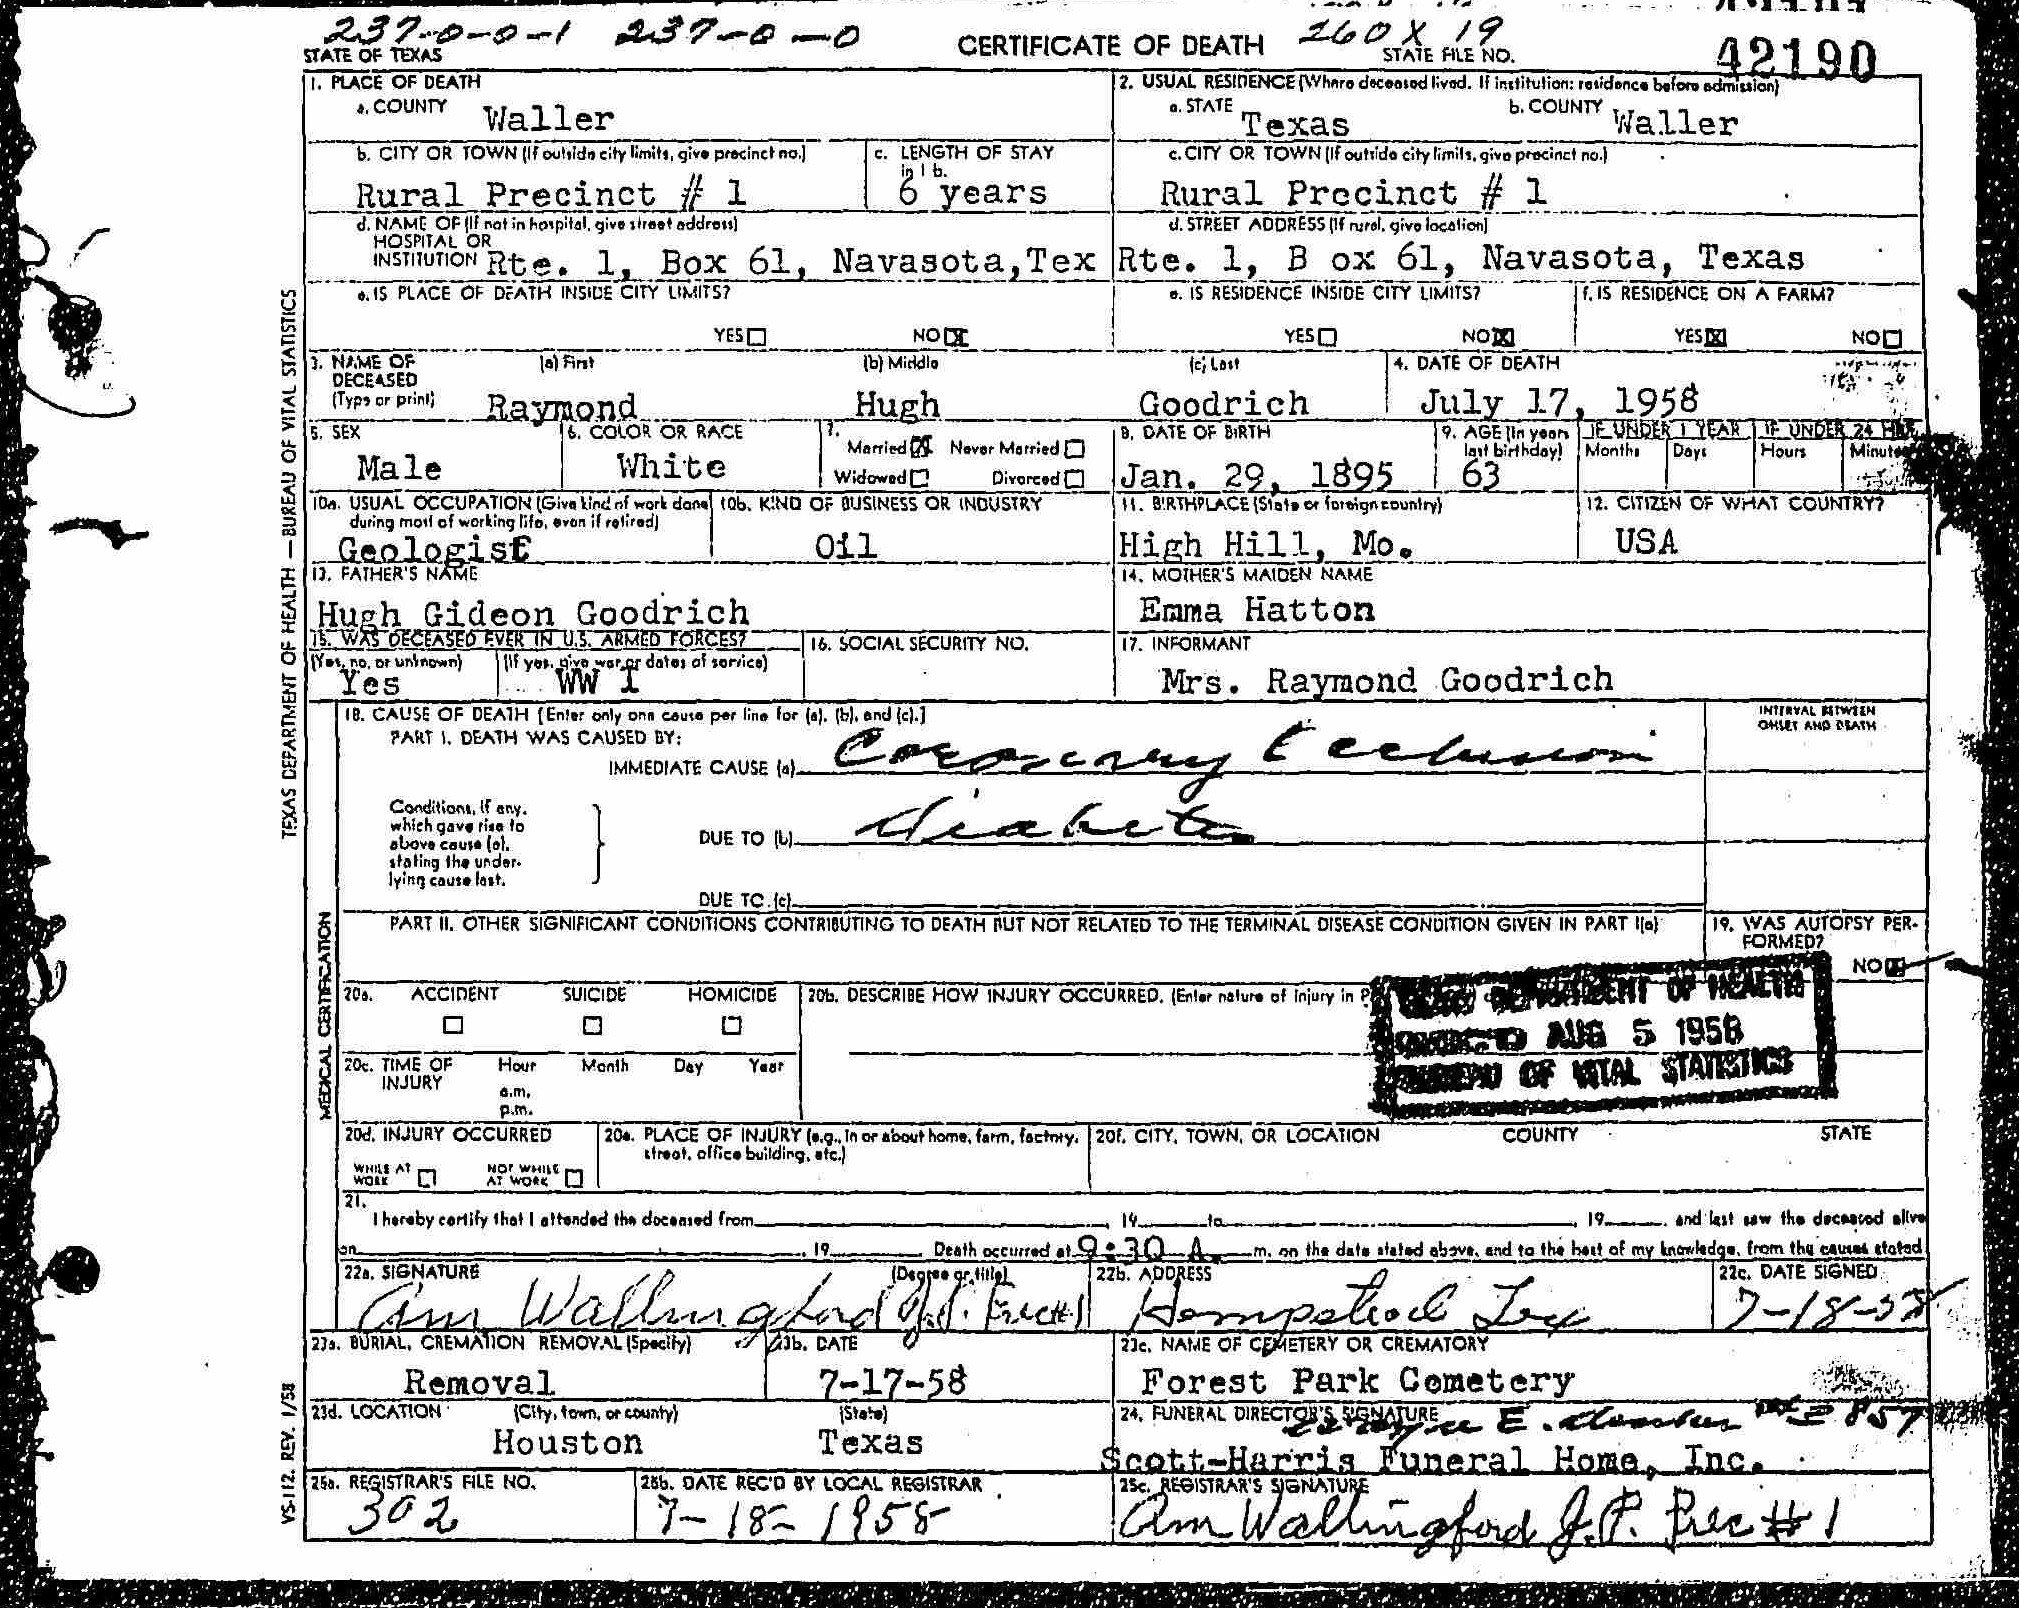 237-0-0-1 237-0-0 CERTIFICATE OF DEATH 260X 19
STATE OF TEXAS STATE FILE NO. 42190
1. PLACE OF DEATH 2. USUAL RESIDENCE (Where deceased lived. If institution: residence before admission)
a. COUNTY Waller a. STATE Texas b. COUNTY Waller
b. CITY OR TOWN (If outside city limits, give precinct no.) c. LENGTH OF STAY in 1 b. c. CITY OR TOWN (If outside city limits, give precinct no.)
Rural Precinct # 1 6 years Rural Precinct # 1
d. NAME OF (If not in hospital, give street address) d. STREET ADDRESS (If rural, give location)
HOSPITAL OR
INSTITUTION Rte. 1, Box 61, Navasota,Tex Rte. 1, B ox 61, Navasota, Texas
e. IS PLACE OF DEATH INSIDE CITY LIMITS? e. IS RESIDENCE INSIDE CITY LIMITS? f. IS RESIDENCE ON A FARM?
YES NO X YES NO X YES X NO
3. NAME OF (a) First (b) Middle (c) Last 4. DATE OF DEATH
DECEASED
(Type or print) Raymond Hugh Goodrich July 17, 1958
5. SEX 6. COLOR OR RACE 7. Married X Never Married 8. DATE OF BIRTH 9. AGE (In years last birthday) IF UNDER 1 YEAR IF UNDER 24 HRS.
Months Days Hours Minutes
Male White Widowed Divorced Jan. 29, 1895 63
10a. USUAL OCCUPATION (Give kind of work done 10b. KIND OF BUSINESS OR INDUSTRY 11. BIRTHPLACE (State or foreign country) 12. CITIZEN OF WHAT COUNTRY?
during most of working life, even if retired)
Geologist Oil High Hill, Mo. USA
13. FATHER'S NAME 14. MOTHER'S MAIDEN NAME
Hugh Gideon Goodrich Emma Hatton
15. WAS DECEASED EVER IN U.S. ARMED FORCES? 16. SOCIAL SECURITY NO. 17. INFORMANT
(Yes, no, or unknown) (If yes, give war or dates of service)
Yes WW I Mrs. Raymond Goodrich
18. CAUSE OF DEATH [Enter only one cause per line for (a), (b), and (c).] INTERVAL BETWEEN
PART I. DEATH WAS CAUSED BY: ONSET AND DEATH
IMMEDIATE CAUSE (a) Coronary Occlusion
Conditions, if any,
which gave rise to
above cause (a), DUE TO (b) diabetes
stating the under-
lying cause last.
DUE TO (c)
PART II. OTHER SIGNIFICANT CONDITIONS CONTRIBUTING TO DEATH BUT NOT RELATED TO THE TERMINAL DISEASE CONDITION GIVEN IN PART I(a) 19. WAS AUTOPSY PER-
FORMED?
NO X
20a. ACCIDENT SUICIDE HOMICIDE 20b. DESCRIBE HOW INJURY OCCURRED. (Enter nature of injury in
DEPARTMENT OF HEALTH
AUG 5 1958
BUREAU OF VITAL STATISTICS
20c. TIME OF Hour Month Day Year
INJURY a.m.
p.m.
20d. INJURY OCCURRED 20e. PLACE OF INJURY (e.g., in or about home, farm, factory, 20f. CITY, TOWN, OR LOCATION COUNTY STATE
street, office building, etc.)
WHILE AT WORK NOT WHILE AT WORK
21.
I hereby certify that I attended the deceased from 19 to 19 and last saw the deceased alive
on 19 Death occurred at 9:30 A. m. on the date stated above, and to the best of my knowledge, from the causes stated
22a. SIGNATURE (Degree or title) 22b. ADDRESS 22c. DATE SIGNED
Am Wallingford J.P. Prec#1 Hempstead Tex 7-18-58
23a. BURIAL, CREMATION REMOVAL (Specify) 23b. DATE 23c. NAME OF CEMETERY OR CREMATORY
Removal 7-17-58 Forest Park Cemetery
23d. LOCATION (City, town, or county) (State) 24. FUNERAL DIRECTOR'S SIGNATURE
Houston Texas Scott-Harris Funeral Home, Inc.
25a. REGISTRAR'S FILE NO. 25b. DATE REC'D BY LOCAL REGISTRAR 25c. REGISTRAR'S SIGNATURE
302 7-18-1958 Am Wallingford J.P. Prec #1
TEXAS DEPARTMENT OF HEALTH — BUREAU OF VITAL STATISTICS
MEDICAL CERTIFICATION
VS-112. REV. 1/58